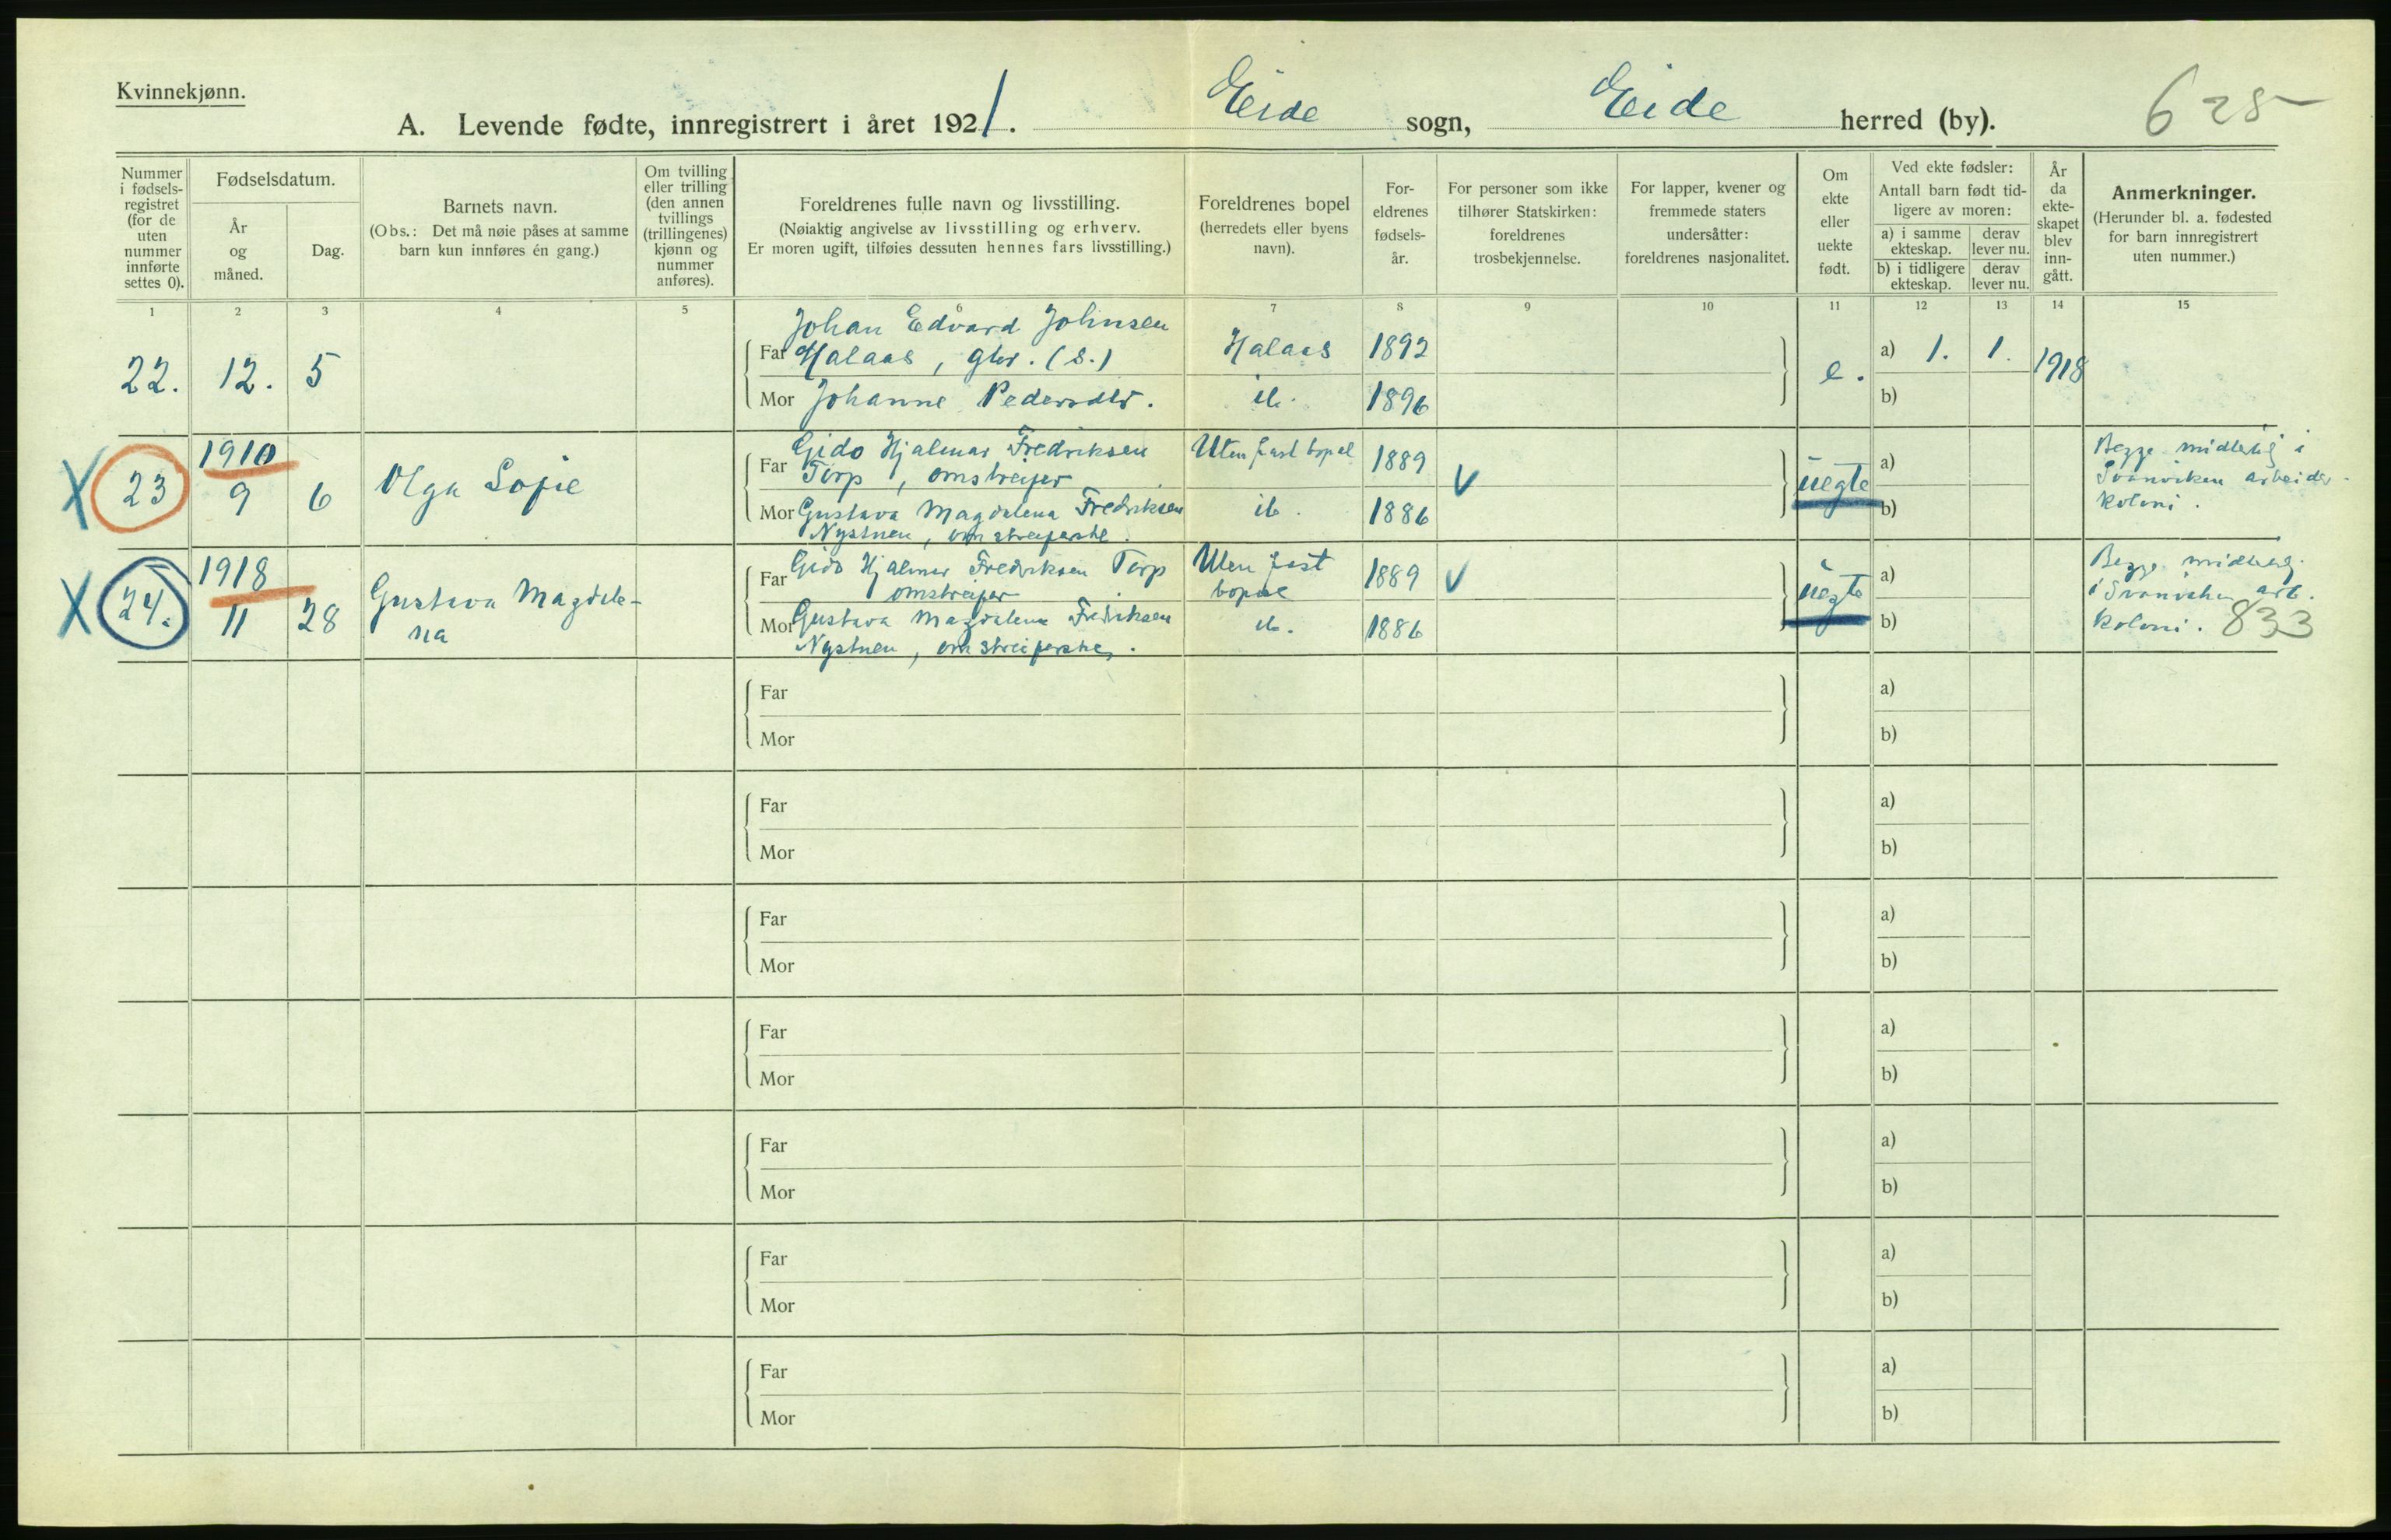 Kvinnekjønn.
A. Levende fødte, innregistrert i året 1921. Eide sogn, Eide herred (by).
625
Nummer i fødsels-registret (for de uten nummer innførte settes 0).
Fødselsdatum.
År og måned.
Dag.
Barnets navn.
(Obs.: Det må nøie påses at samme barn kun innføres én gang.)
Om tvilling eller trilling (den annen tvillings (trillingenes) kjønn og nummer anføres).
Foreldrenes fulle navn og livsstilling.
(Nøiaktig angivelse av livsstilling og erhverv.
Er moren ugift, tilføies dessuten hennes fars livsstilling.)
Foreldrenes bopel
(herredets eller byens navn).
For-eldrenes fødsels-år.
For personer som ikke tilhører Statskirken: foreldrenes trosbekjennelse.
For lapper, kvener og fremmede staters undersåtter: foreldrenes nasjonalitet.
Om ekte eller uekte født.
Ved ekte fødsler:
Antall barn født tid-ligere av moren:
a) i samme ekteskap.
derav lever nu.
b) i tidligere ekteskap.
derav lever nu.
År da ekte-skapet blev inn-gått.
Anmerkninger.
(Herunder bl. a. fødested for barn innregistrert uten nummer.)
1 2 3 4 5 6 7 8 9 10 11 12 13 14 15
22. 12. 5
Johan Edvard Johnsen
Far Halaas, gbr. (S.) Halaas 1892
Mor Johanne Pedersdtr. ib. 1896
e. a) 1. 1. 1918
b)
X 23 1910
9 6 Olga Sofie
Gido Hjalmar Fredriksen
Far Torp, omstreifer Uten fast bopel 1889 V
Mor Gustava Magdalena Fredriksen ib. 1886
Nystuen, omstreiferske.
uegte a)
b)
Begge midlertig i
Svanviken arbeider-
koloni.
X 24. 1918
11 28 Gustava Magdale-
na
Far Gido Hjalmar Fredriksen Torp Uten fast
omstreifer bopæl 1889 V
Mor Gustava Magdalena Fredriksen ib. 1886
Nystuen, omstreiferske.
uegte a)
b)
Begge midlertg.
i Svanviken arb.
koloni. 833
Far a)
Mor b)
Far a)
Mor b)
Far a)
Mor b)
Far a)
Mor b)
Far a)
Mor b)
Far a)
Mor b)
Far a)
Mor b)